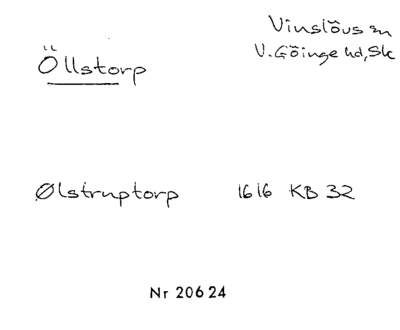 Öllstorp
Vinslövs sn
V. Göinge hd, Sk
Ølstruptorp 1616 KB 32
Nr 20624